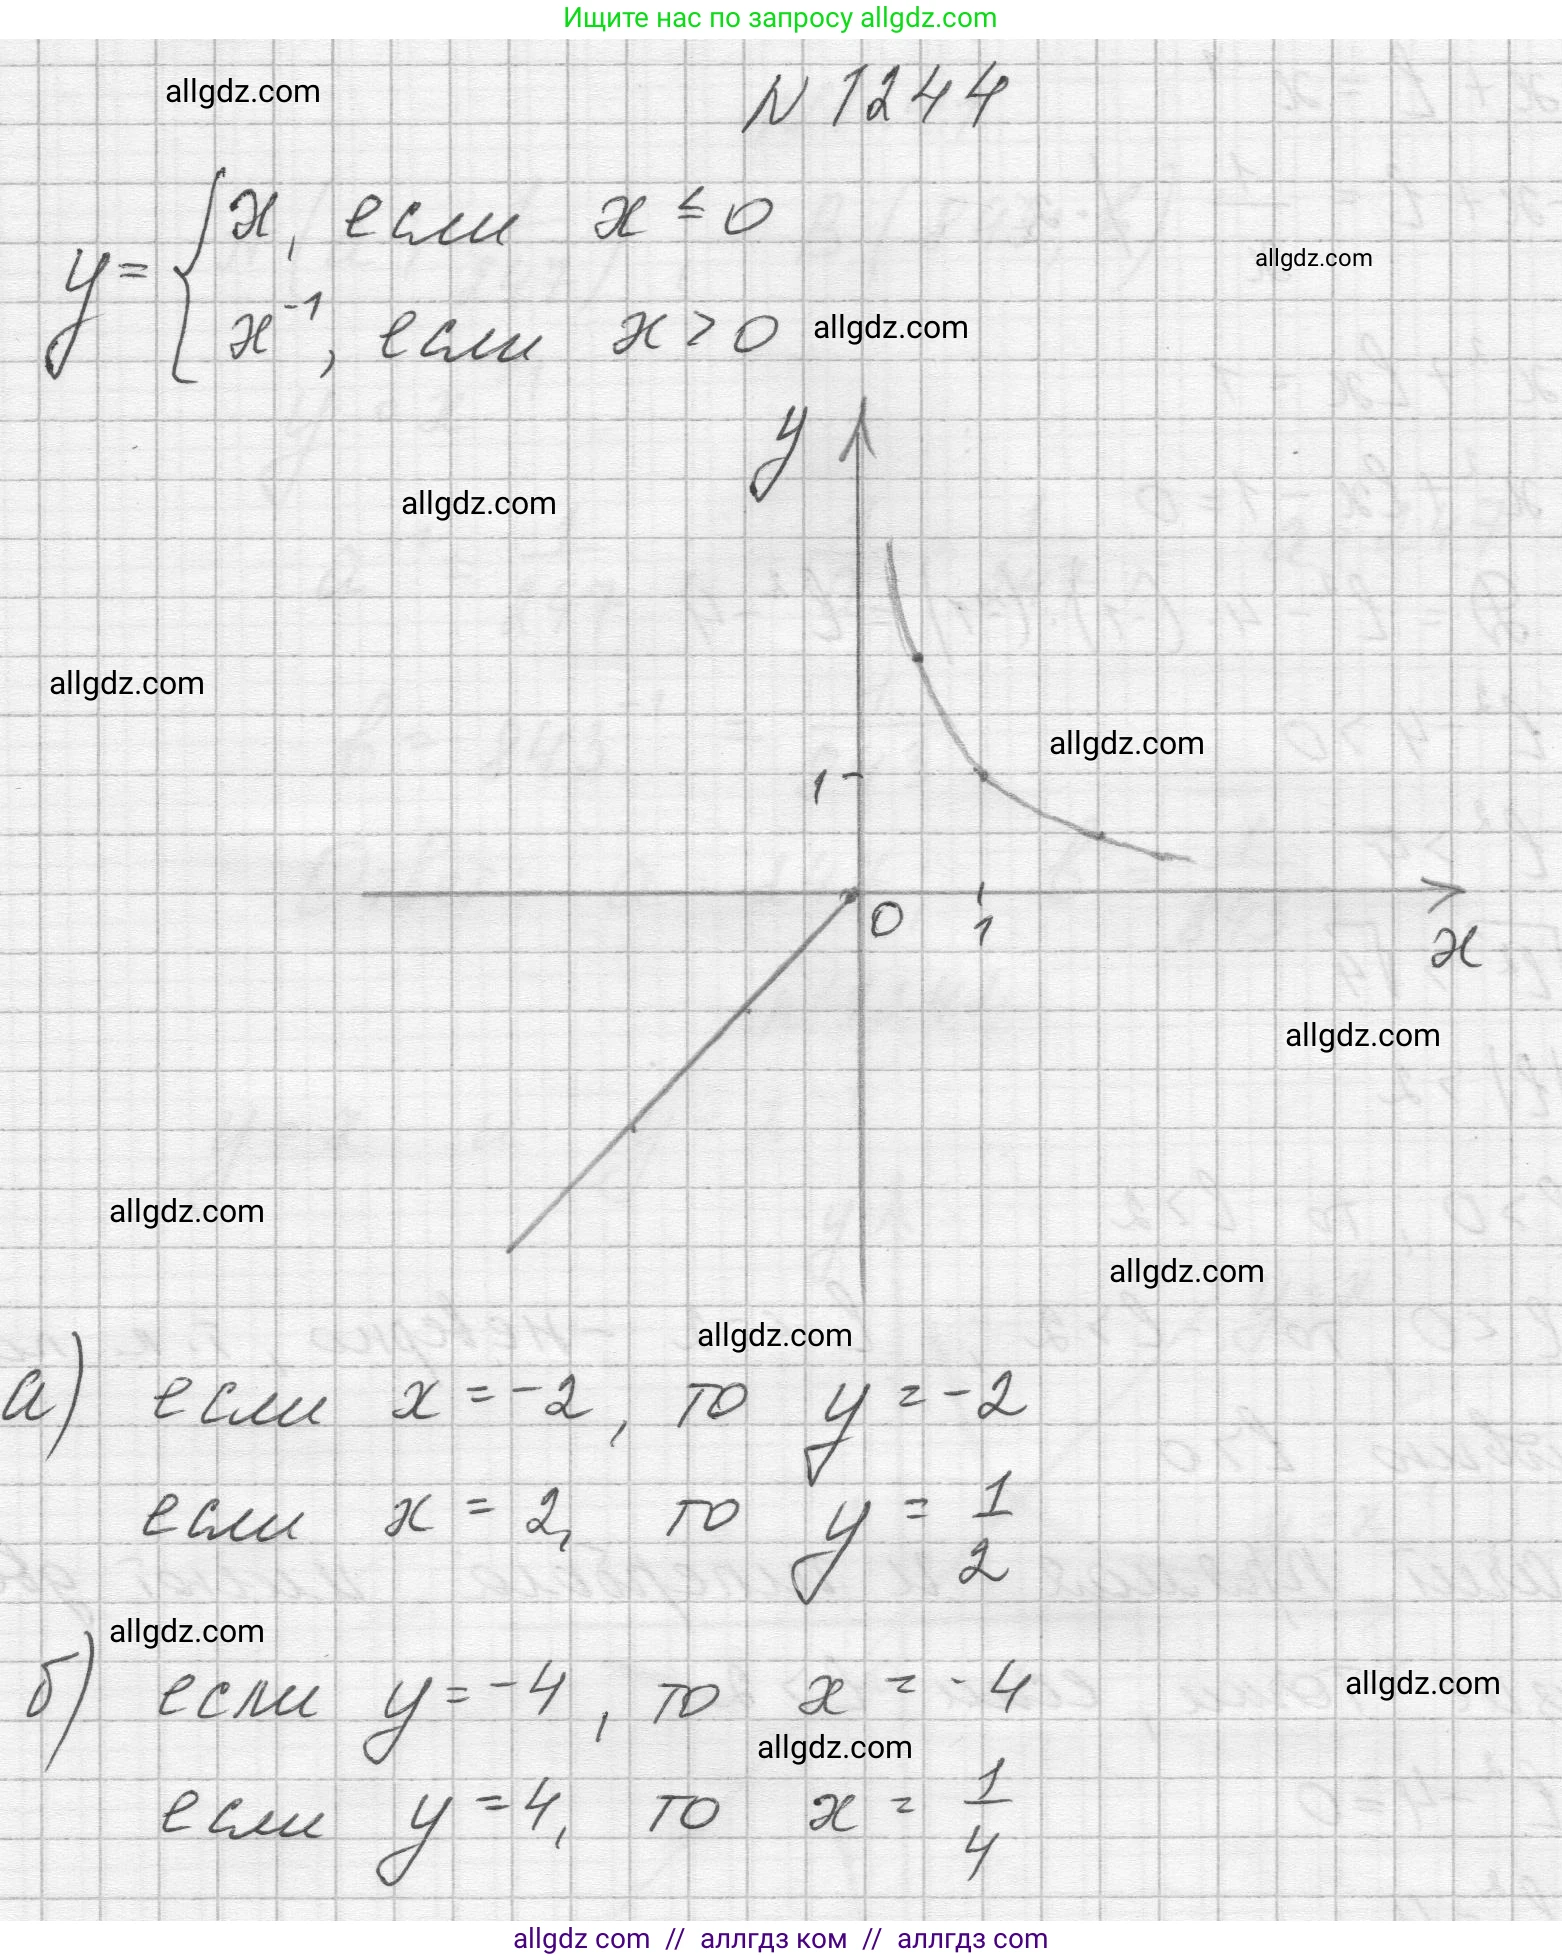 Ищите нас по запросу allgdz.com
allgdz.com
N 1244
y = { x, если x ≤ 0
x⁻¹, если x > 0
allgdz.com
allgdz.com
y
allgdz.com
allgdz.com
allgdz.com
1
0
1
x
allgdz.com
allgdz.com
allgdz.com
allgdz.com
а) если x = -2, то y = -2
если x = 2, то y = 1/2
allgdz.com
б) если y = -4, то x = -4
allgdz.com
allgdz.com
если y = 4, то x = 1/4
allgdz com // аллгдз ком // аллгдз com